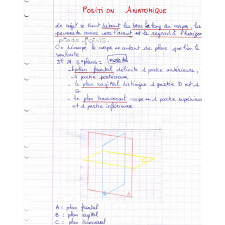 POSITION ANATOMIQUE
Le sujet se tient debout les bras le long du corps, les
paumes mains vers l'avant et le regard à l'horizon
On découpe le corps en autant de plans que l'on le
souhaite
Il a 3 plans :
- plan frontal délimite 1 partie antérieure,
1 partie postérieure
- Le plan sagittal distingue 1 partie D et 1
G
- Le plan transversal coupe en 1 partie supérieure
et 1 partie inférieure
A : plan frontal
B : plan sagittal
C : plan transversal